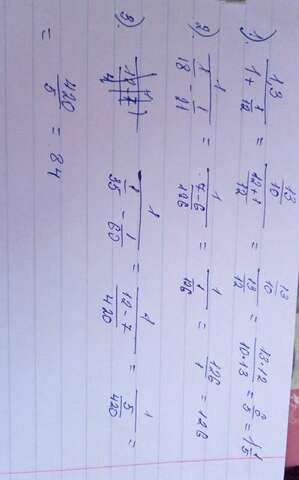 1). 1,3 / (1 + 1/12) = (13/10) / ((12+1)/12) = (13/10) / (13/12) = (13·12)/(10·13) = 6/5 = 1 1/5
2). 1 / (1/18 − 1/21) = 1 / ((7−6)/126) = 1 / (1/126) = 126/1 = 126
3). 1 / (1/35 − 1/60) = 1 / ((12−7)/420) = 1 / (5/420) =
= 420/5 = 84